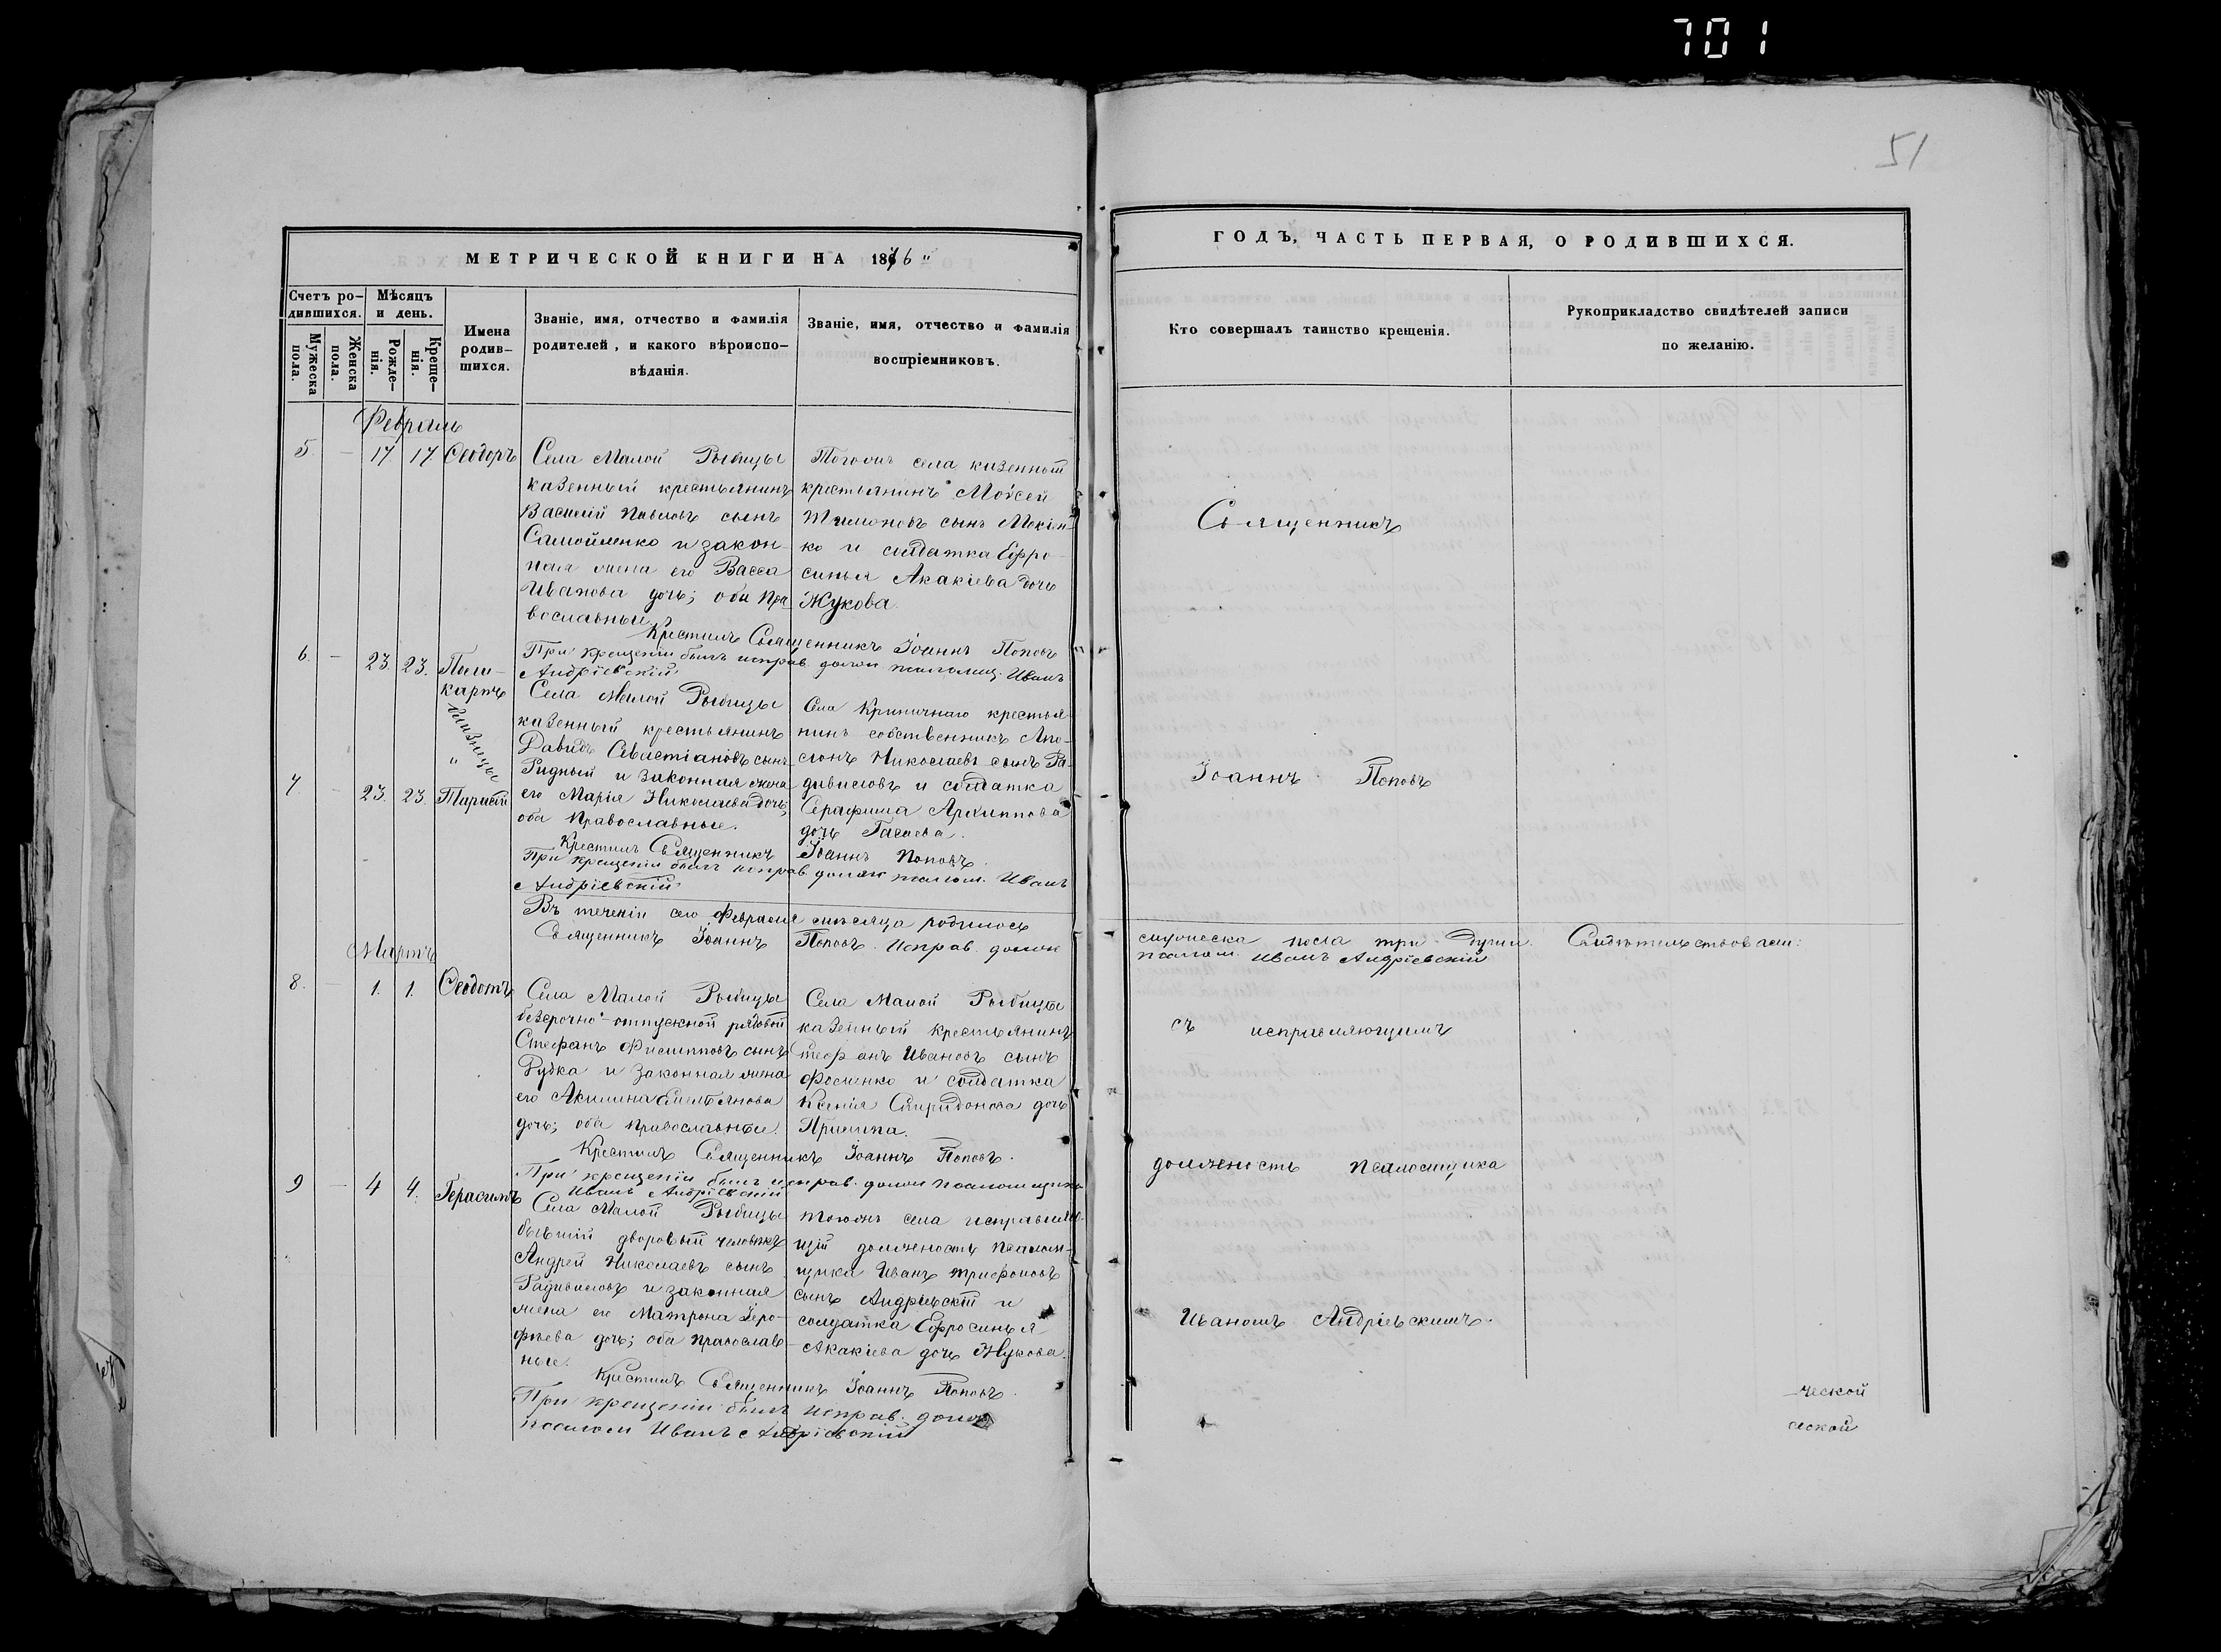 701
51
МЕТРИЧЕСКОЙ КНИГИ НА 1876
ГОДЪ, ЧАСТЬ ПЕРВАЯ, О РОДИВШИХСЯ.
Счетъ ро-
дившихся.
Мужеска
пола.
Женска
пола.
Мѣсяцъ
и день.
Рожде-
нія.
Креще-
нія.
Имена
родив-
шихся.
Званіе, имя, отчество и фамилія
родителей, и какого вѣроиспо-
вѣданія.
Званіе, имя, отчество и фамилія
воспріемниковъ.
Кто совершалъ таинство крещенія.
Рукоприкладство свидѣтелей записи
по желанію.
Февраль
5 — 17 17 Ѳеодоръ
Села Малой Рыбицы
казенный крестьянинъ
Василій Павловъ сынъ
Самойленко и закон-
ная жена его Васса
Иванова дочь; оба пра-
вославные.
Тогожъ села казенный
крестьянинъ Моѵсей
Тимоновъ сынъ
ко и солдатка Ефро-
синья Акакіева дочь
Жукова.
Крестилъ Священникъ Іоаннъ Поповъ
При крещеніи былъ исправ. долж псаломщ. Иванъ
Андріевскій
6. — 23. 23. Поли-
карпъ
близнецы
"
7. — 23. 23. Тарасій
Села Малой Рыбицы
казенный крестьянинъ
Давидъ Севастіановъ сынъ
Ридный и законная жена
его Марія Николаева дочь;
оба православные.
Села Криничнаго крестья-
нинъ собственникъ Апо-
лонъ Николаевъ сынъ Ра-
дивиловъ и солдатка
Серафима Архиппова
дочь
Крестилъ Священникъ Іоаннъ Поповъ.
При крещеніи былъ исправ долж псалом. Иванъ
Андріевскій
Въ теченіи сего Февраля мѣсяца родилось
мужеска пола три души. Свидѣтельствовали:
Священникъ Іоаннъ Поповъ. Исправ. долж
псалом. Иванъ Андріевскій
Мартъ
8. — 1. 1. Ѳеодотъ
Села Малой Рыбицы
безсрочно-отпускной рядовой
Стефанъ Филипповъ сынъ
Рудка и законная жена
его Акилина Емельянова
дочь; оба православные.
Села Малой Рыбицы
казенный крестьянинъ
Стефанъ Ивановъ сынъ
Фоменко и солдатка
Ксенія Спиридонова дочь
Крестилъ Священникъ Іоаннъ Поповъ.
При крещеніи былъ исправ. долж псаломщика
Иванъ Андріевскій
9 — 4 4. Герасимъ
Села Малой Рыбицы
бывшій дворовый человѣкъ
Андрей Николаевъ сынъ
Радивиловъ и законная
жена его Матрона Іеро-
фѣева дочь; оба православ-
ные.
тогожъ села исправляю-
щій должность псалом-
щика Иванъ Трифоновъ
сынъ Андріевскій и
солдатка Ефросинья
Акакіева дочь Жукова.
Крестилъ Священникъ Іоаннъ Поповъ.
При крещеніи былъ исправ. долж
псалом Иванъ Андріевскій
Священникъ
Іоаннъ Поповъ
съ исправляющимъ
должность псаломщика
Иваномъ Андріевскимъ.
-ческой
еской